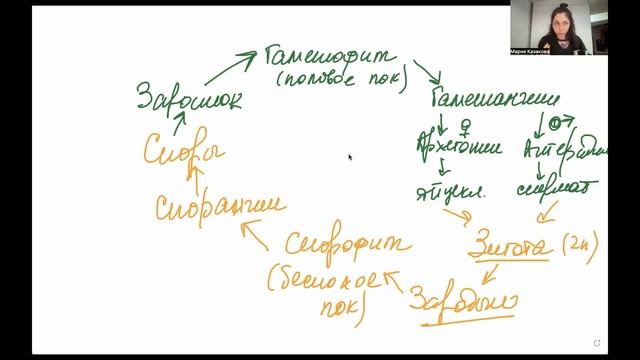 Гаметофит
(половое пок)
Заросток
Гаметангии
Споры
Архегонии
Антеридии
Спорангии
яйцекл.
спермат
Спорофит
(бесполое
пок)
Зигота (2n)
Зародыш
Мария Казакова